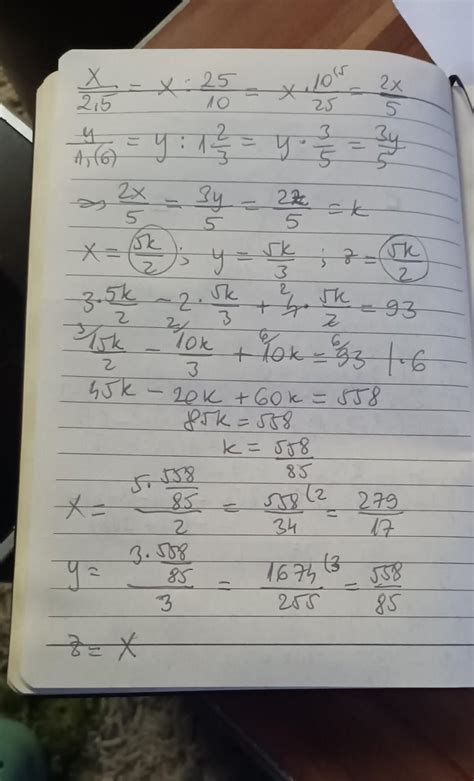 x/2,5 = x : 25/10 = x · 10/25 = 2x/5
y/1,(6) = y : 1 2/3 = y · 3/5 = 3y/5
=> 2x/5 = 3y/5 = 2z/5 = k
x = 5k/2 ; y = 5k/3 ; z = 5k/2
3 · 5k/2 - 2 · 5k/3 + 4 · 5k/2 = 93
15k/2 - 10k/3 + 10k = 93 | · 6
45k - 20k + 60k = 558
85k = 558
k = 558/85
x = 5 · 558/85 / 2 = 558/34 (2 = 279/17
y = 3 · 558/85 / 3 = 1674/255 (3 = 558/85
z = x